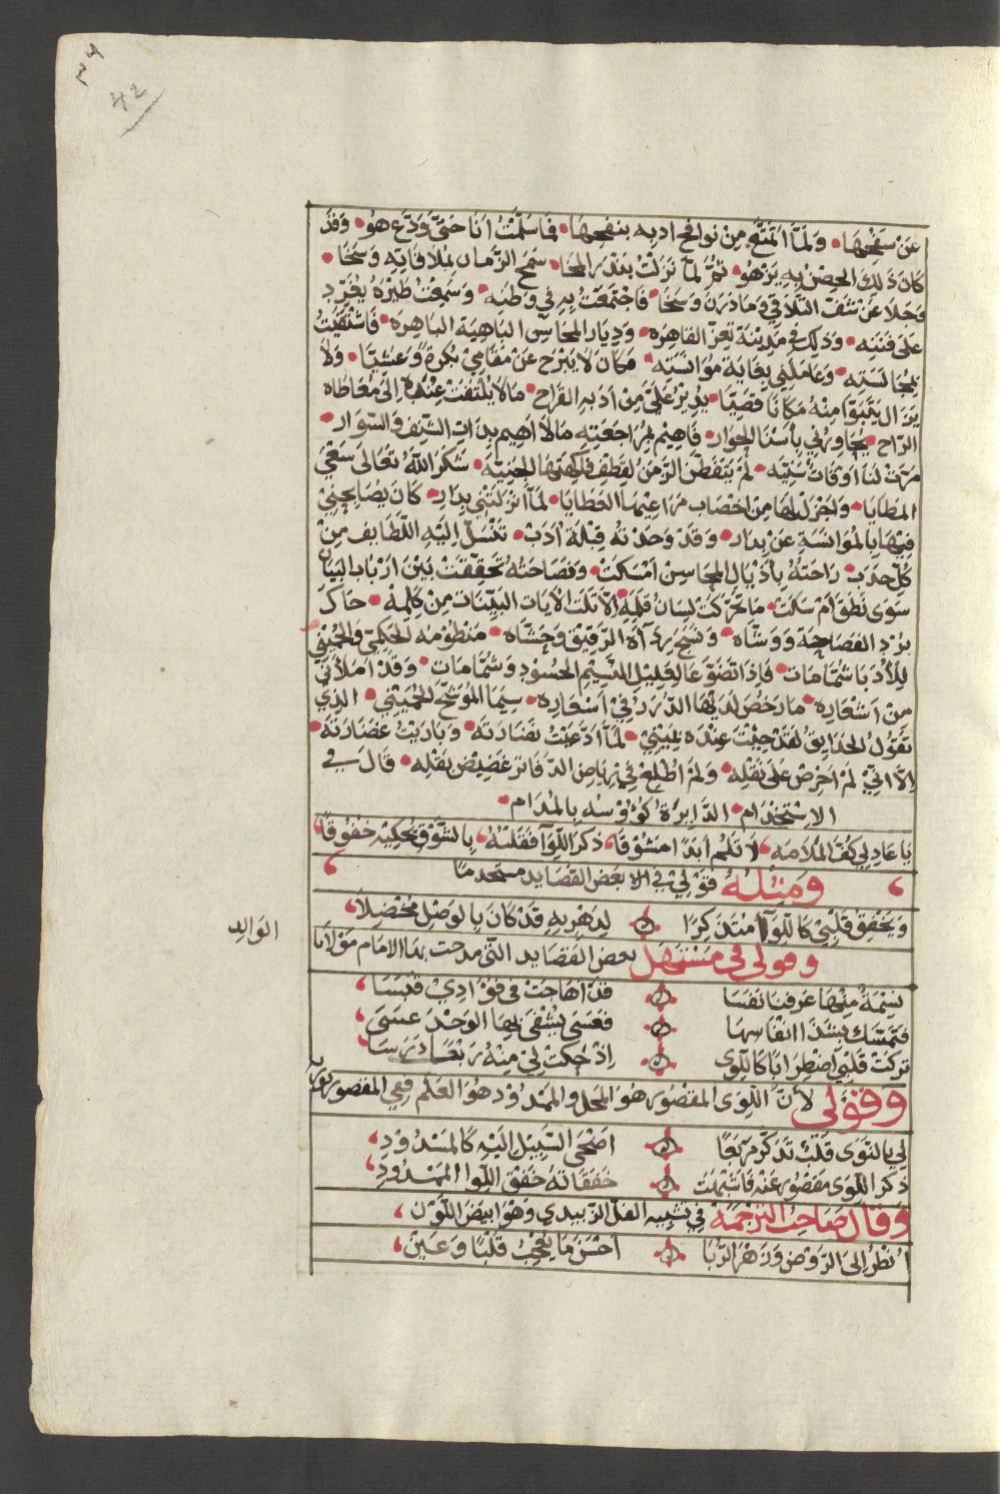 ٣٩
42
عن سفحها، ولما اتمتع من نوافح ادبه بنفحها، فما سلمت انا حتى ودع هو، وقد
كان ذلك الحصن به يزهو، ثم لما نزلت بندر المخا، سمح الزمان بملاقاته وسخا،
وحلا عن شفت التلاقي وسخا، فاجتمعت به في وطنه، وسمعت طيره يغرد
على فننه، وذلك في مدينة تعز القاهره، وديار المحاسن الباهية الباهره، فاشتقيت
بمجالسته، وعاملني بغاية موانسته، فكان لا يبرح عن مقامي بكرة وعشيا، ولا
يزال يتبوا منه مكانا قصيا، يدير علي من ادبه القراح، مالا يلتفت عنها الى معاطاه
الراح، يجاورني باسنا الجوار، فاهيم لمراجعته مالا اهيم بذات الشنف والسوار،
مرت لنا اوقات سنيه، لم يتفطن الزمن لقطف فاكهتها الجنيه، شكر الله تعالى سعي
المطايا، واجزل لها من اخصاب مراعيها العطايا، لما انزلتني بدار، كان يصابحني
فيها بالموانسة عن بدار، وقد وجدته قبلة ادب، تنسل اليه اللطايف من
كل حدب، راحته باذيال المحاسن امسكت، وفصاحته تحققت بين ارباب البيان
سوى نطق ام سكت، ما تحركت لسان قلمه الا تلت الايات البينات من كلمه، حاك
برد الفصاحة ووشاه، ونسج رداه الرقيق وحشاه، منظومه الحكمي والحميني
للادبا شمامات، فاذا تضوعا لعليل النسيم الحسود وشمامات، وقد املاني
من اشعاره، ما رخص لديها الدرر في اسعاره، سيما الموشح الحميني، الذي
تقول الحدايق لقد حنثت عنده يميني، لما ادعيت نضارته، وباريت غضارته،
الا اني لم احرص على نقله، ولم اطلع في رياض الدفاتر غضيض بقله، قال في
الاستخدام، الدايرة كؤوسه بالمدام،
يا عاذلي كف الملامه، لا تلم ابدا مشوقا، ذكر اللوا فقلبه، بالشوق يحكيه خفوقا،
ومثله قولي في الا بعض القصايد مستخدما
ويخفق قلبي كاللوا متذكرا لدهر به قد كان بالوصل مخضلا،
وقولي في مستهل بعض القصايد التي مدحت بها الامام مولانا
الوالد
نسمة منها عرفنا نفسا قد اهاجت في فؤادي قبسا،
فتمسك بشذا انفاسها فعسى يشفى بها الوجد عسى،
تركت قلبي اضطرابا كاللوى اذ حكت لي منه ربعا درسا،
وقولي لان اللوى المقصور هو المحل والممدود هو العلم ففي المقصور توريه
لي بالنوى قلب تذكر مربعا اضحى السبيل اليه كالمسدود،
ذكر اللوى مقصور عنه فاشبهت خفقانه خفق اللوا الممدود،
وقال صاحب الترجمة في تشبيه الفل الزبيدي وهو ابيض اللون،
انظر الى الروض وزهر الربا احسن ما يعجب قلبا وعين،